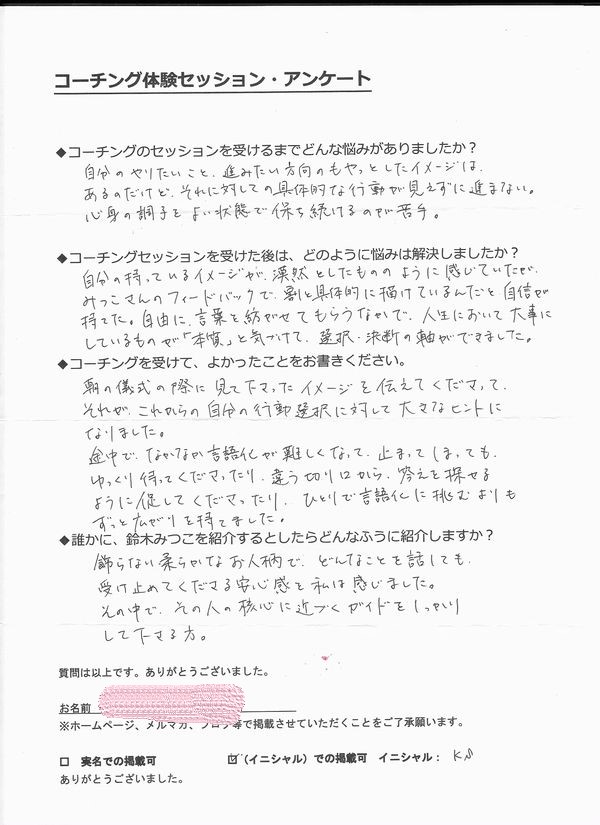 コーチング体験セッション・アンケート
◆コーチングのセッションを受けるまでどんな悩みがありましたか？
自分のやりたいこと、進みたい方向のもやっとしたイメージは、
あるのだけど、それに対しての具体的な行動が見えずに進まない。
心身の調子をよい状態で保ち続けるのが苦手。
◆コーチングセッションを受けた後は、どのように悩みは解決しましたか？
自分の持っているイメージが、漠然としたもののように感じていたが、
みつこさんのフィードバックで、割と具体的に描けているんだと自信が
持てた。自由に、言葉を紡がせてもらうなかで、人生において大事に
しているものが「本質」と気づけて、選択・決断の軸ができました。
◆コーチングを受けて、よかったことをお書きください。
朝の儀式の際に見て下さったイメージを伝えてくださって、
それが、これからの自分の行動選択に対して大きなヒントに
なりました。
途中で、なかなか言語化が難しくなって、止まってしまっても、
ゆっくり待ってくださったり、違う切り口から、答えを探せる
ように促してくださったり、ひとりで言語化に挑むよりも
ずっと広がりを持てました。
◆誰かに、鈴木みつこを紹介するとしたらどんなふうに紹介しますか？
飾らない柔らかなお人柄で、どんなことを話しても、
受け止めてくださる安心感を私は感じました。
その中で、その人の核心に近づくガイドをしっかり
して下さる方。
質問は以上です。ありがとうございました。
お名前
※ホームページ、メルマガ、ブログ等で掲載させていただくことをご了承願います。
□ 実名での掲載可 ☑（イニシャル）での掲載可 イニシャル： K.
ありがとうございました。